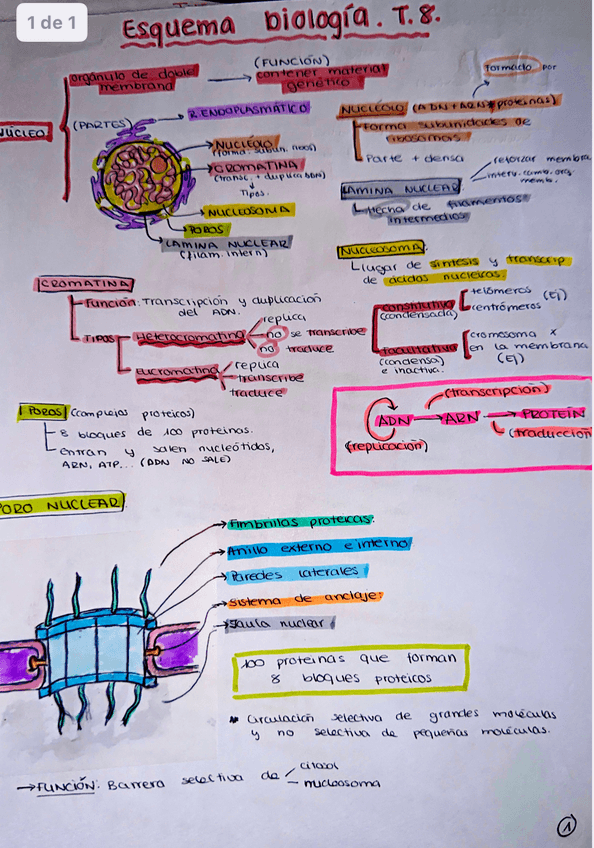 1 de 1
Esquema biología. T.8.
NÚCLEO
orgánulo de doble
membrana
(FUNCIÓN)
contener material
genético
(PARTES)
R. ENDOPLASMÁTICO
NUCLEOLO
CROMATINA
(transc. + duplica ADN)
Tipos.
NUCLEOSOMA
POROS
LAMINA NUCLEAR
(filam. intern)
formado por
NUCLEOLO (ADN+ARN+proteinas)
Forma subunidades de
ribosomas
Parte + densa
LAMINA NUCLEAR
reforzar membra
interv. camb. org.
memb.
Hecha de filamentos
intermedios
NUCLEOSOMA
Lugar de síntesis y transcrip
de ácidos nucleicos.
constitutiva
(condensada)
telómeros
(Ej)
centrómeros
facultativa
(condensa)
e inactiva.
cromosoma x
en la membrana
(Ej)
CROMATINA
Función: Transcripción y duplicación
del ADN.
TIPOS
Heterocromatina
replica
no se transcribe
no traduce
Eucromatina
replica
transcribe
traduce
POROS (complejos proteicos)
8 bloques de 100 proteinas.
Entran y salen nucleótidos,
ARN, ATP... (ADN NO SALE)
(transcripción)
ADN → ARN → PROTEÍN
(replicación)
(traducción
PORO NUCLEAR
Fimbrillas proteicas.
Anillo externo e interno
Paredes laterales
Sistema de anclaje:
Jaula nuclear
100 proteinas que forman
8 bloques proteicos
* Circulación selectiva de grandes moléculas
y no selectiva de pequeñas moléculas.
→ FUNCIÓN: Barrera selectiva de
citosol
nucleosoma
1